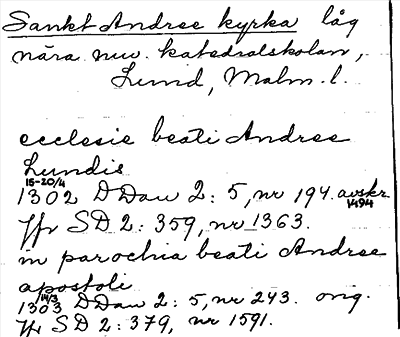 Sankt Andree kyrka låg
nära nuv. katedralskolan,
Lund, Malm. l.
ecclesie beati Andree
Lundis
15-20/4
1302 DDan 2:5, nr 194. avskr.
1494
Jfr SD 2:359, nr 1363.
in parochia beati Andree
apostoli
14/3
1303 DDan 2:5, nr 243. orig.
Jfr SD 2:379, nr 1591.